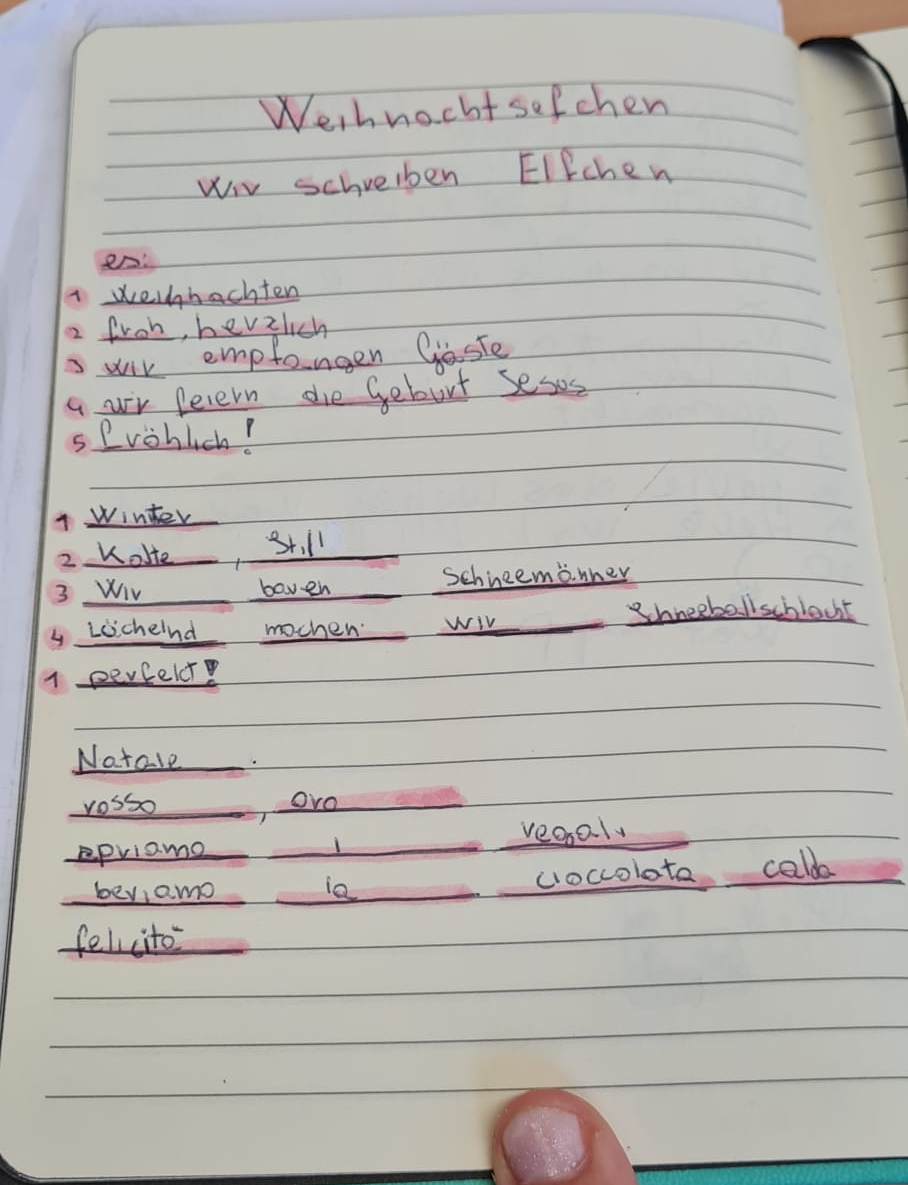 Weihnachtselfchen
Wir schreiben Elfchen
es:
1 Weihnachten
2 froh, herzlich
3 wir empfangen Gäste
4 wir feiern die Geburt Jesos
5 fröhlich!
1 Winter
2 Kalte, Still
3 Wir bauen Schneemänner
4 Lächelnd machen wir Schneeballschlacht
1 perfekt!
Natale
rosso, oro
apriamo i regali
beviamo la cioccolata calda
felicità